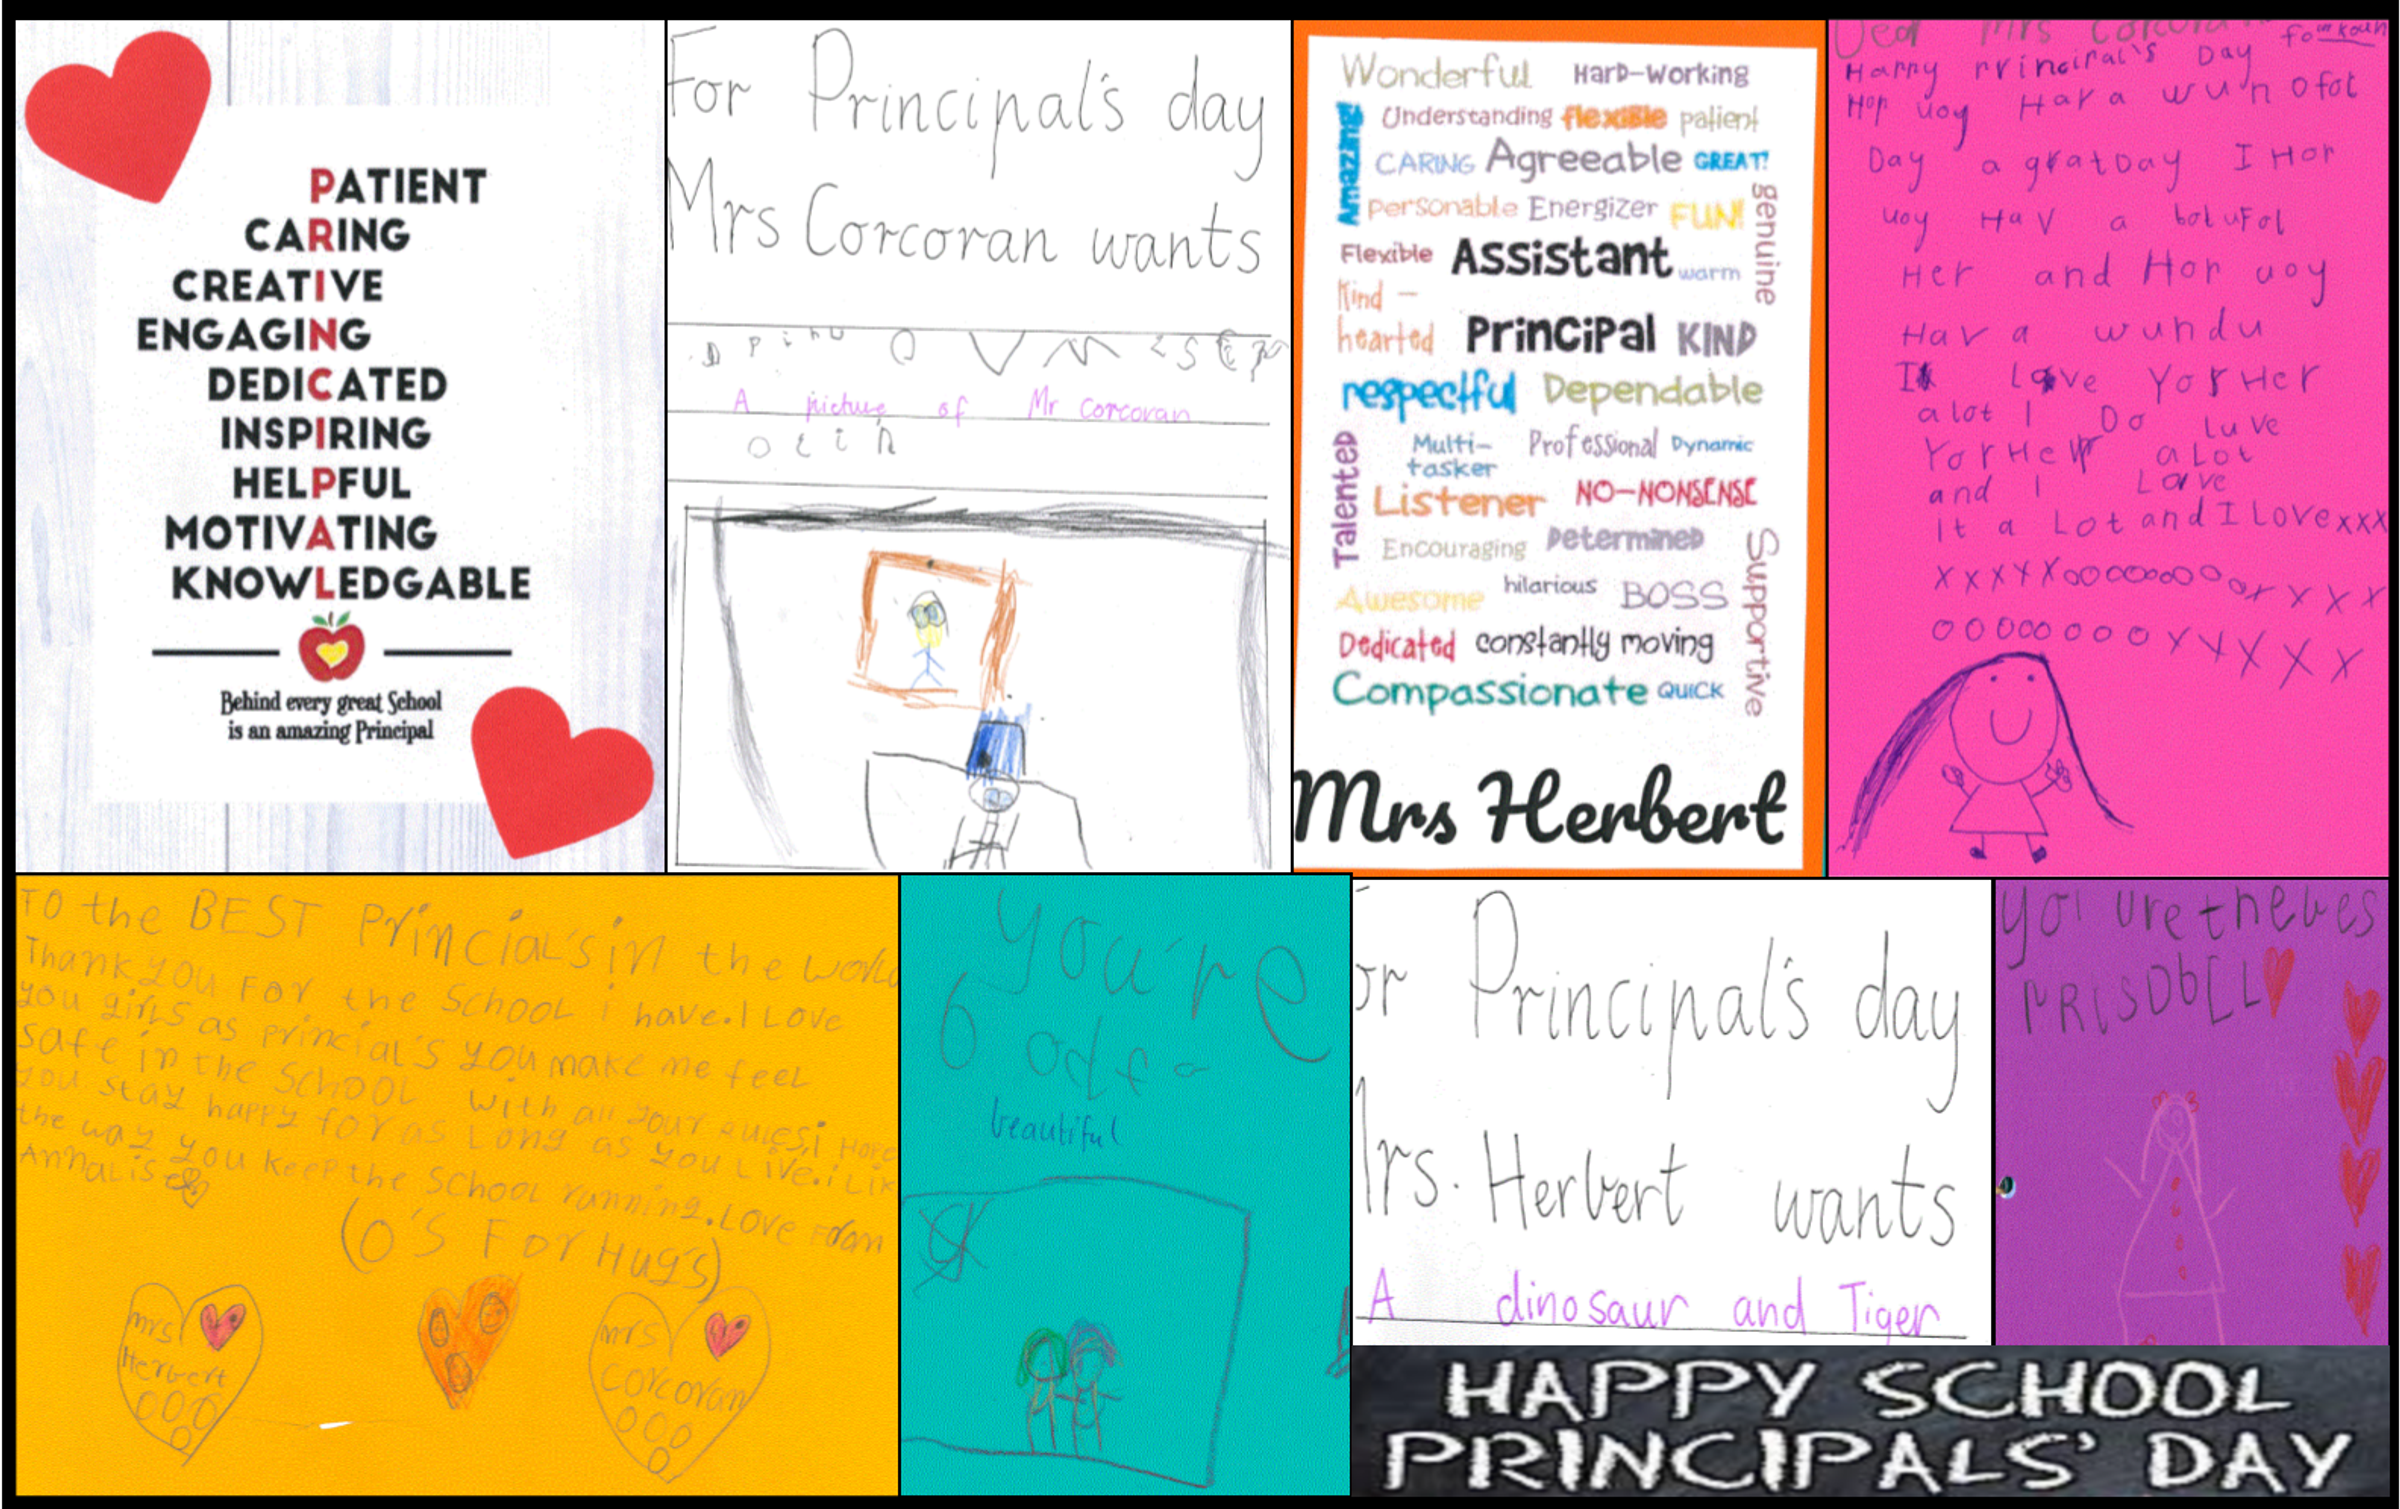 PATIENT
CARING
CREATIVE
ENGAGING
DEDICATED
INSPIRING
HELPFUL
MOTIVATING
KNOWLEDGABLE
Behind every great School
is an amazing Principal
For Principal's day
Mrs Corcoran wants
A picture of Mr Corcoran
Wonderful Hard-Working
Amazing! Understanding flexible patient
CARING Agreeable GREAT!
personable Energizer FUN! genuine
Flexible Assistant warm
Kind-
hearted Principal KIND
respectful Dependable
Talented Multi-
tasker Professional Dynamic
Listener NO-NONSENSE
Encouraging Determined Supportive
Awesome hilarious BOSS
Dedicated constantly moving
Compassionate QUICK
Mrs Herbert
Dear Mrs Corcoran
Happy Principal's Day
Hop uoy Hav a wunofot
Day a gratDay I Hop
uoy Hav a botufol
Her and Hop uoy
Hav a wundu
I love Yor Her
a lot I Do luve
Yor Help a Lot
and I Love
it a Lot and I Love xxx
XXXXXooooooooooxxxx
OOOOOOOOXXXXX
To the BEST Princial's in the world
Thank you For the School i have. I Love
you girls as princial's you make me feel
safe in the School with all your I Hope
you stay happy for as Long as you Live. i Lik
the way you keep the School running. Love From
Annalise
(O'S For Hugs)
mrs
Herbert
OOO
O
mrs
Corcoran
OOO
O
you're
beautiful
or Principal's day
rs. Herbert wants
A dinosaur and Tiger
you are the bes
PRISDbLL
HAPPY SCHOOL
PRINCIPALS' DAY